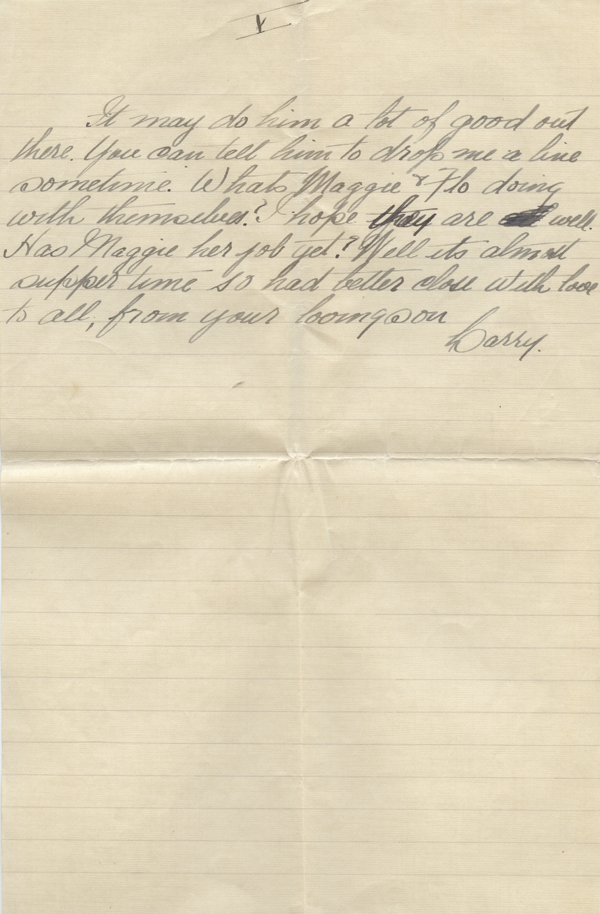 V
It may do him a lot of good out
there. You can tell him to drop me a line
sometime. Whats Maggie & Flo doing
with themselves? I hope they are well.
Has Maggie her job yet? Well its almost
supper time so had better close with love
to all, from your loving son